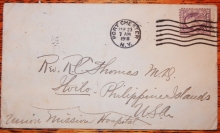 PORT CHESTER
7 AM
N.Y.
Rev. R. C. Thomas M.D.
Iloilo, Philippine Islands
Union Mission Hospital